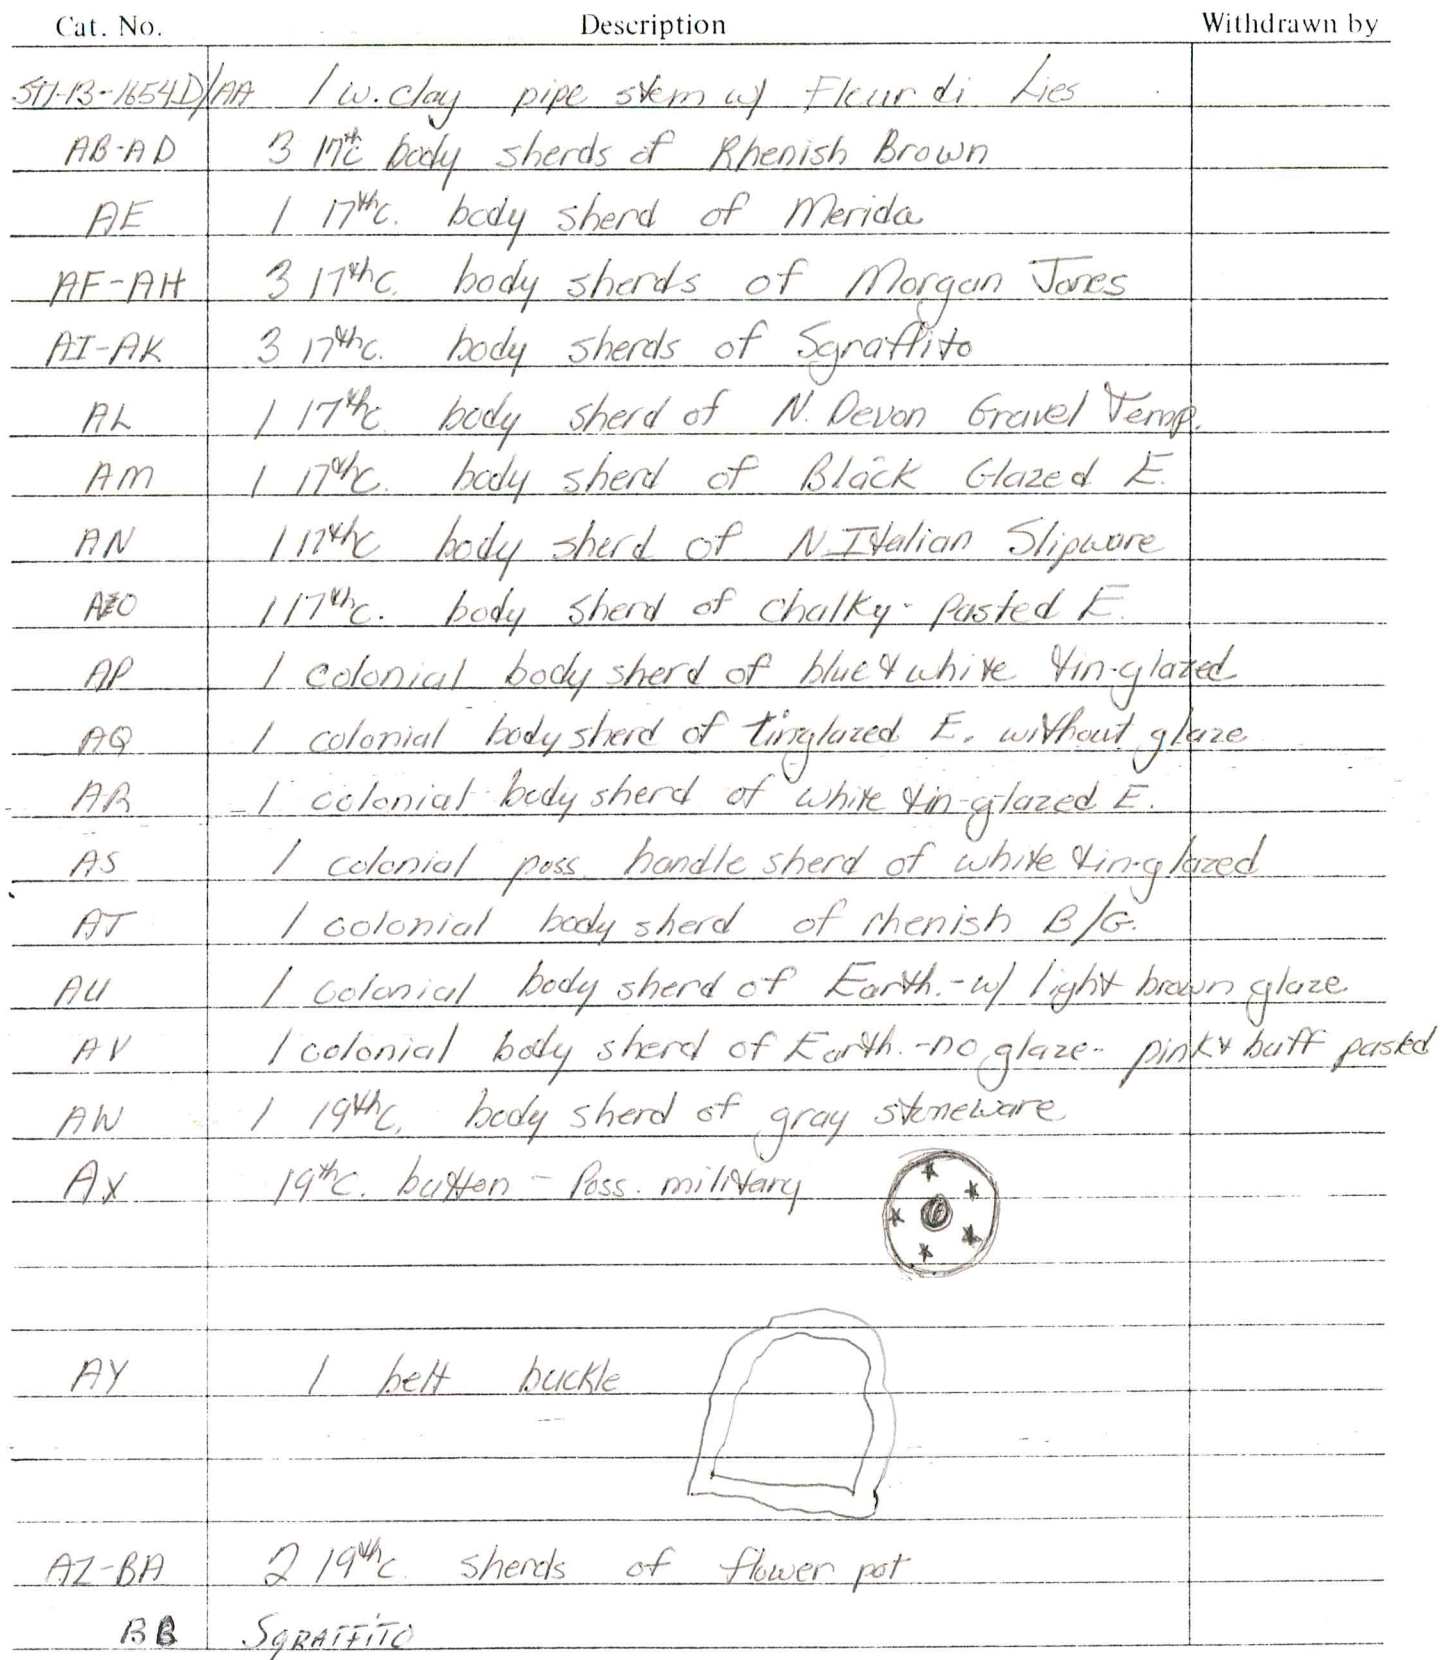 Cat. No. Description Withdrawn by
ST1-13-1654D/AA 1 w. clay pipe stem w/ Fleur di Lies
AB-AD 3 17thc body sherds of Rhenish Brown
AE 1 17thc. body sherd of Merida
AF-AH 3 17thc. body sherds of Morgan Jones
AI-AK 3 17thc. body sherds of Sgraffito
AL 1 17thc. body sherd of N. Devon Gravel Temp.
AM 1 17thc. body sherd of Black Glazed E.
AN 1 17thc body sherd of N. Italian Slipware
AO 1 17thc. body sherd of chalky-pasted E.
AP 1 colonial body sherd of blue & white tin-glazed
AQ 1 colonial body sherd of tinglazed E. without glaze
AR 1 colonial body sherd of white tin-glazed E.
AS 1 colonial poss. handle sherd of white tin-glazed
AT 1 colonial body sherd of rhenish B/G.
AU 1 colonial body sherd of Earth.-w/ light brown glaze
AV 1 colonial body sherd of Earth.-no glaze- pink & buff pasted
AW 1 19thc. body sherd of gray stoneware
AX 19thc. button - Poss. military
AY 1 belt buckle
AZ-BA 2 19thc. sherds of flower pot
BB SGRAFFITO